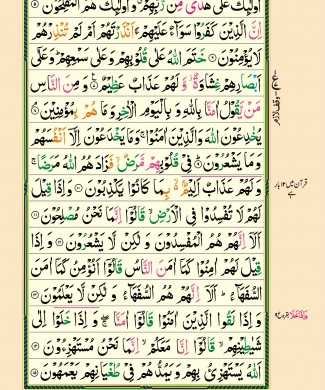 أُولَٰئِكَ عَلَىٰ هُدًى مِّن رَّبِّهِمْ وَأُولَٰئِكَ هُمُ الْمُفْلِحُونَ ۝
إِنَّ الَّذِينَ كَفَرُوا سَوَاءٌ عَلَيْهِمْ ءَأَنذَرْتَهُمْ أَمْ لَمْ تُنذِرْهُمْ
لَا يُؤْمِنُونَ ۝ خَتَمَ اللَّهُ عَلَىٰ قُلُوبِهِمْ وَعَلَىٰ سَمْعِهِمْ وَعَلَىٰ
أَبْصَارِهِمْ غِشَاوَةٌ وَلَهُمْ عَذَابٌ عَظِيمٌ ۝ وَمِنَ النَّاسِ
مَن يَقُولُ آمَنَّا بِاللَّهِ وَبِالْيَوْمِ الْآخِرِ وَمَا هُم بِمُؤْمِنِينَ ۝
يُخَادِعُونَ اللَّهَ وَالَّذِينَ آمَنُوا وَمَا يَخْدَعُونَ إِلَّا أَنفُسَهُمْ
وَمَا يَشْعُرُونَ ۝ فِي قُلُوبِهِم مَّرَضٌ فَزَادَهُمُ اللَّهُ مَرَضًا
وَلَهُمْ عَذَابٌ أَلِيمٌ بِمَا كَانُوا يَكْذِبُونَ ۝ وَإِذَا قِيلَ
لَهُمْ لَا تُفْسِدُوا فِي الْأَرْضِ قَالُوا إِنَّمَا نَحْنُ مُصْلِحُونَ ۝
أَلَا إِنَّهُمْ هُمُ الْمُفْسِدُونَ وَلَٰكِن لَّا يَشْعُرُونَ ۝ وَإِذَا
قِيلَ لَهُمْ آمِنُوا كَمَا آمَنَ النَّاسُ قَالُوا أَنُؤْمِنُ كَمَا آمَنَ
السُّفَهَاءُ أَلَا إِنَّهُمْ هُمُ السُّفَهَاءُ وَلَٰكِن لَّا يَعْلَمُونَ ۝
وَإِذَا لَقُوا الَّذِينَ آمَنُوا قَالُوا آمَنَّا وَإِذَا خَلَوْا إِلَىٰ
شَيَاطِينِهِمْ قَالُوا إِنَّا مَعَكُمْ إِنَّمَا نَحْنُ مُسْتَهْزِئُونَ ۝
اللَّهُ يَسْتَهْزِئُ بِهِمْ وَيَمُدُّهُمْ فِي طُغْيَانِهِمْ يَعْمَهُونَ ۝
وقف لازم
قرآن میں ۱۲ بار
ہے